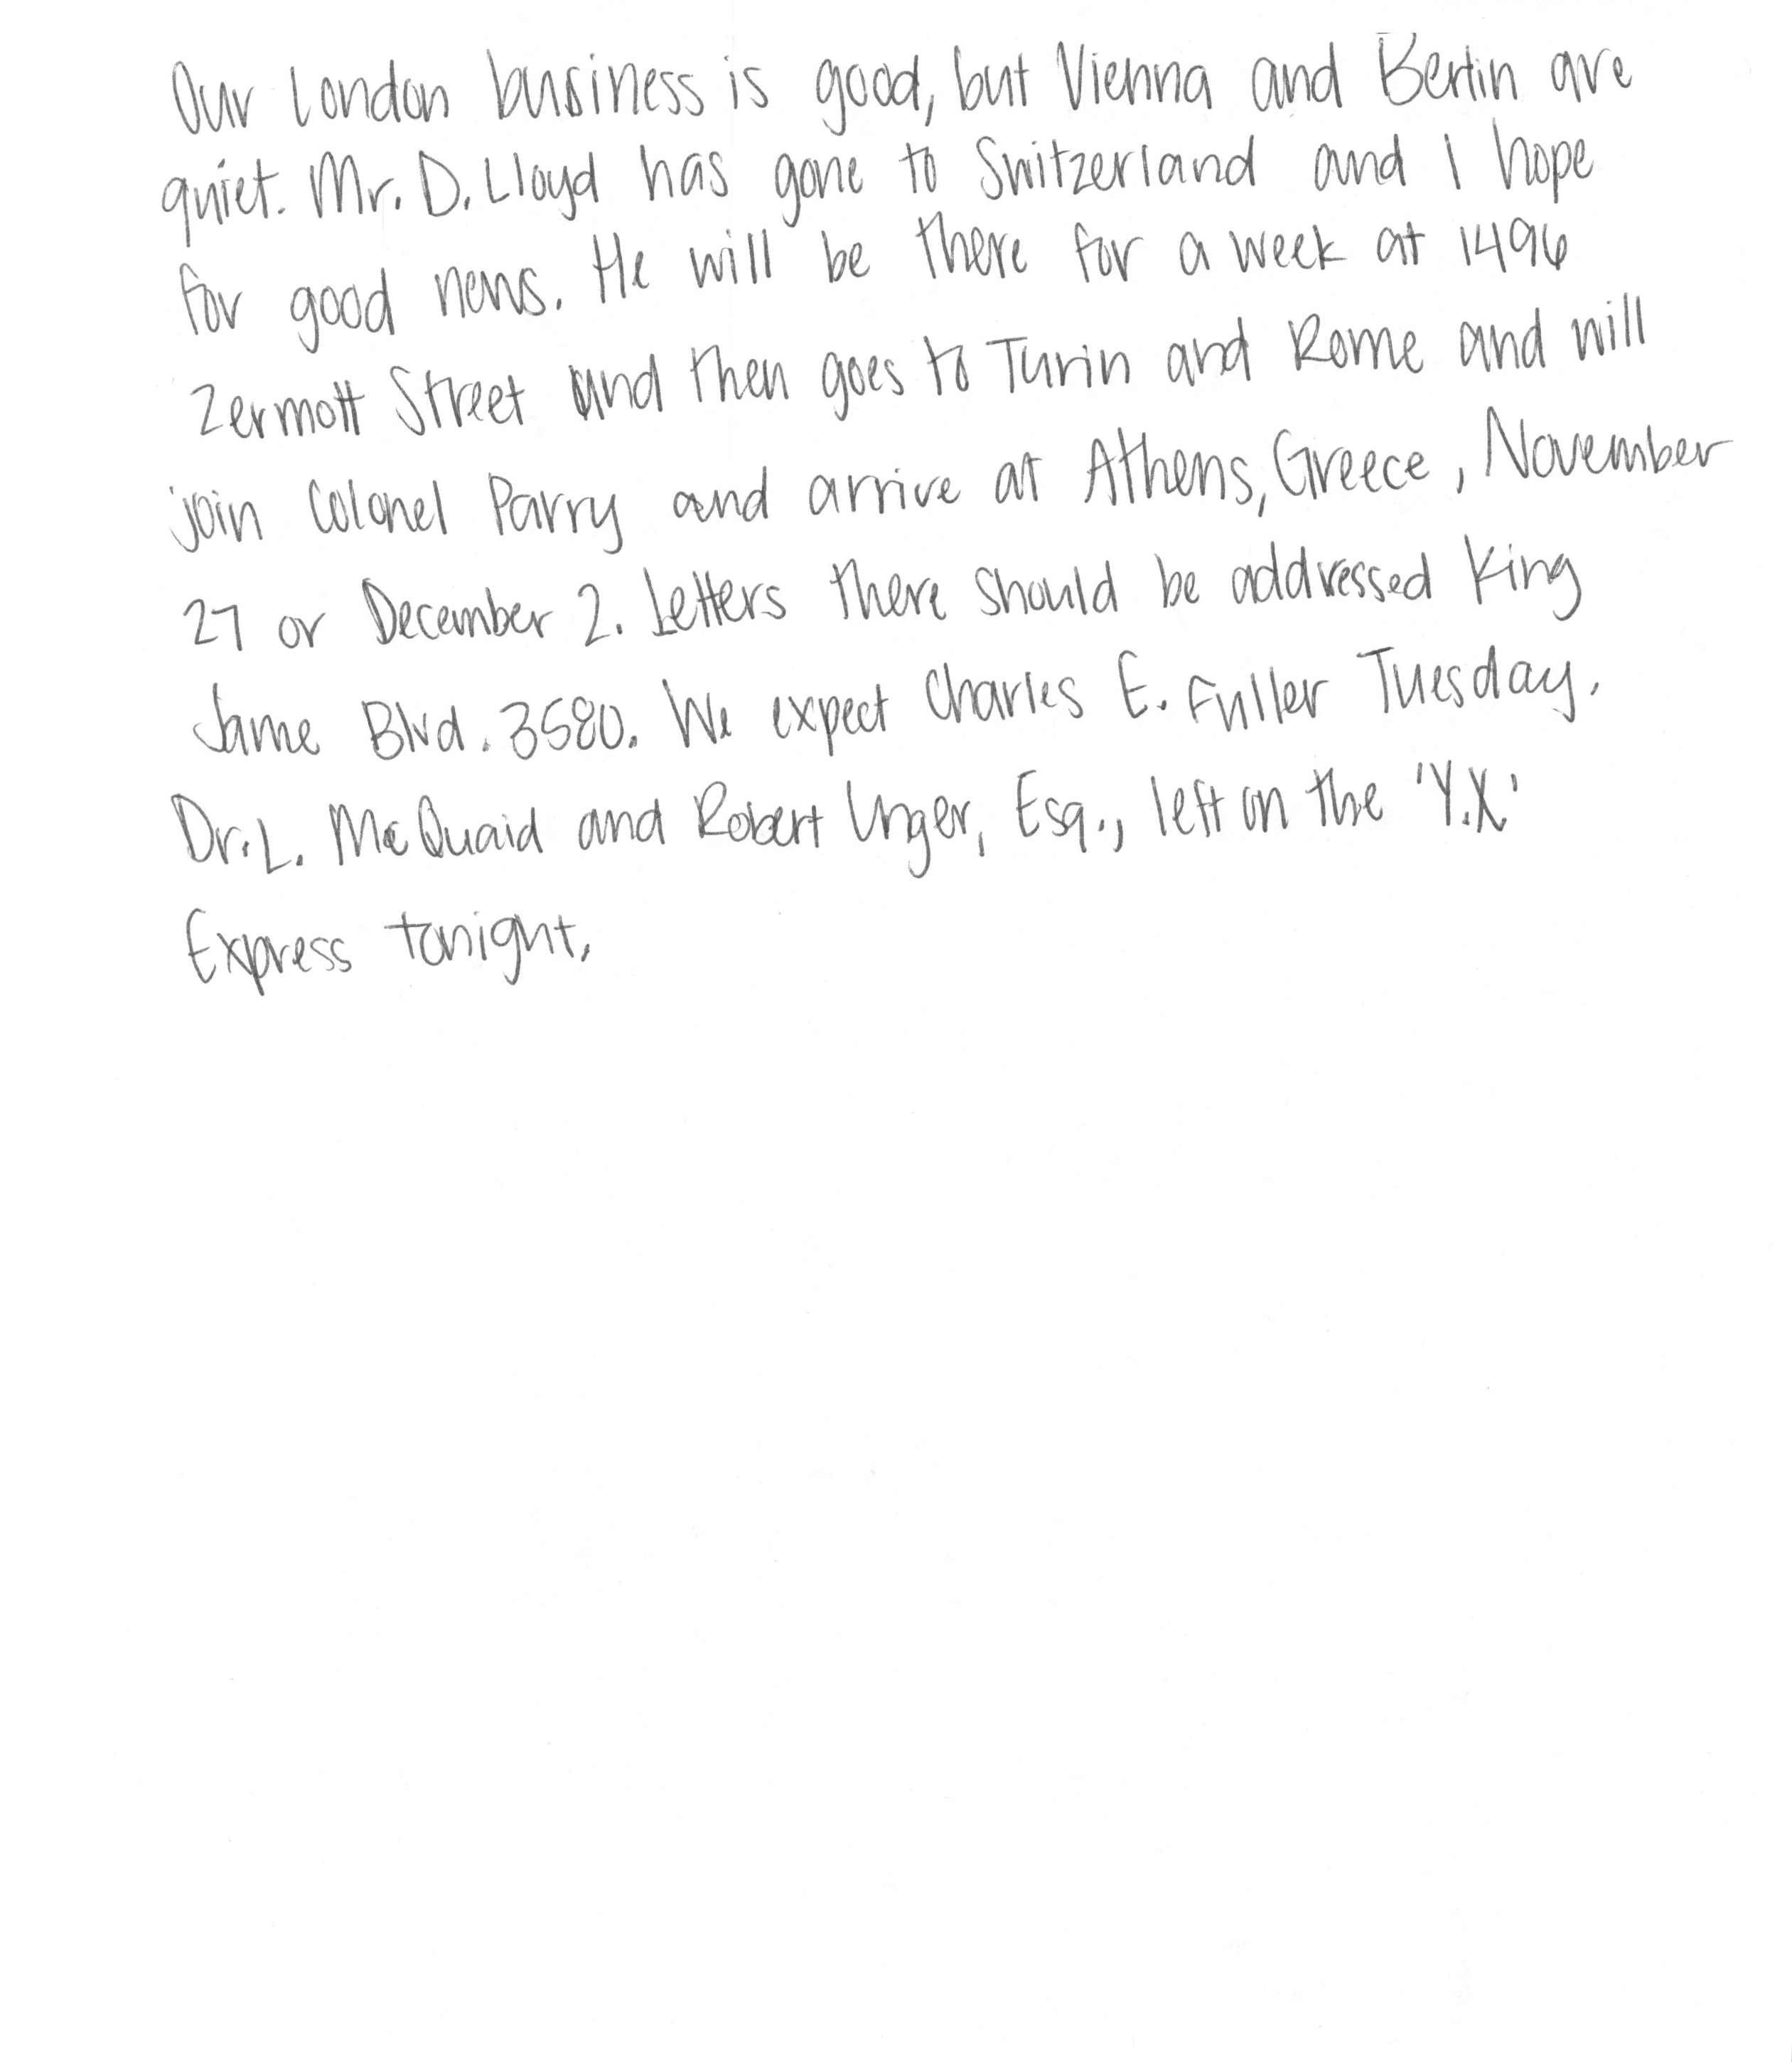 Our London business is good, but Vienna and Berlin are
quiet. Mr. D. Lloyd has gone to Switzerland and I hope
for good news. He will be there for a week at 1496
Zermott Street and then goes to Turin and Rome and will
join Colonel Parry and arrive at Athens, Greece, November
27 or December 2. Letters there should be addressed King
Jame Blvd. 3580. We expect Charles E. Fuller Tuesday.
Dr. L. McQuaid and Robert Unger, Esq., left on the 'Y.X.'
Express tonight.